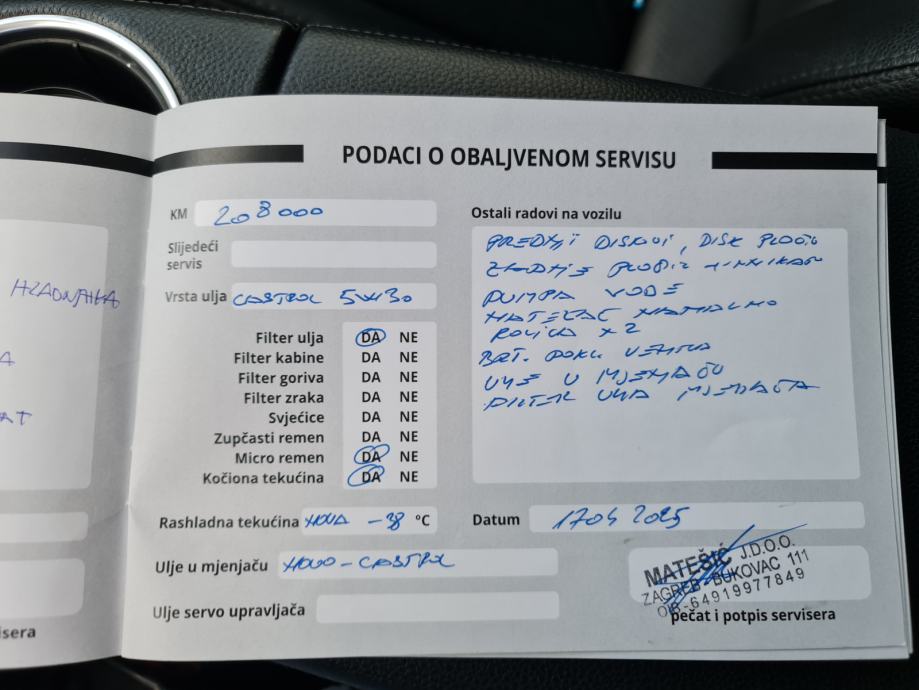 HLADNJAKA
A
AT
isera
PODACI O OBALJVENOM SERVISU
KM 208 000
Slijedeći servis
Vrsta ulja CASTROL 5W30
Filter ulja DA NE
Filter kabine DA NE
Filter goriva DA NE
Filter zraka DA NE
Svjećice DA NE
Zupčasti remen DA NE
Micro remen DA NE
Kočiona tekućina DA NE
Rashladna tekućina NOVA -38 °C
Ulje u mjenjaču NOVO - CASTROL
Ulje servo upravljača
Ostali radovi na vozilu
PREDNJI DISKOVI, DISK PLOČIC
ZADNJE PLOČIC
PUMPA VODE
NATEZAČ
ROLICA X2
BRT. POKL VENTILA
ULJE U MJENJAČU
FILTER ULJA MJENJAČA
Datum 1704 2025
MATEŠIĆ J.D.O.O.
ZAGREB-BUKOVAC 111
OIB-64919977849
pečat i potpis servisera